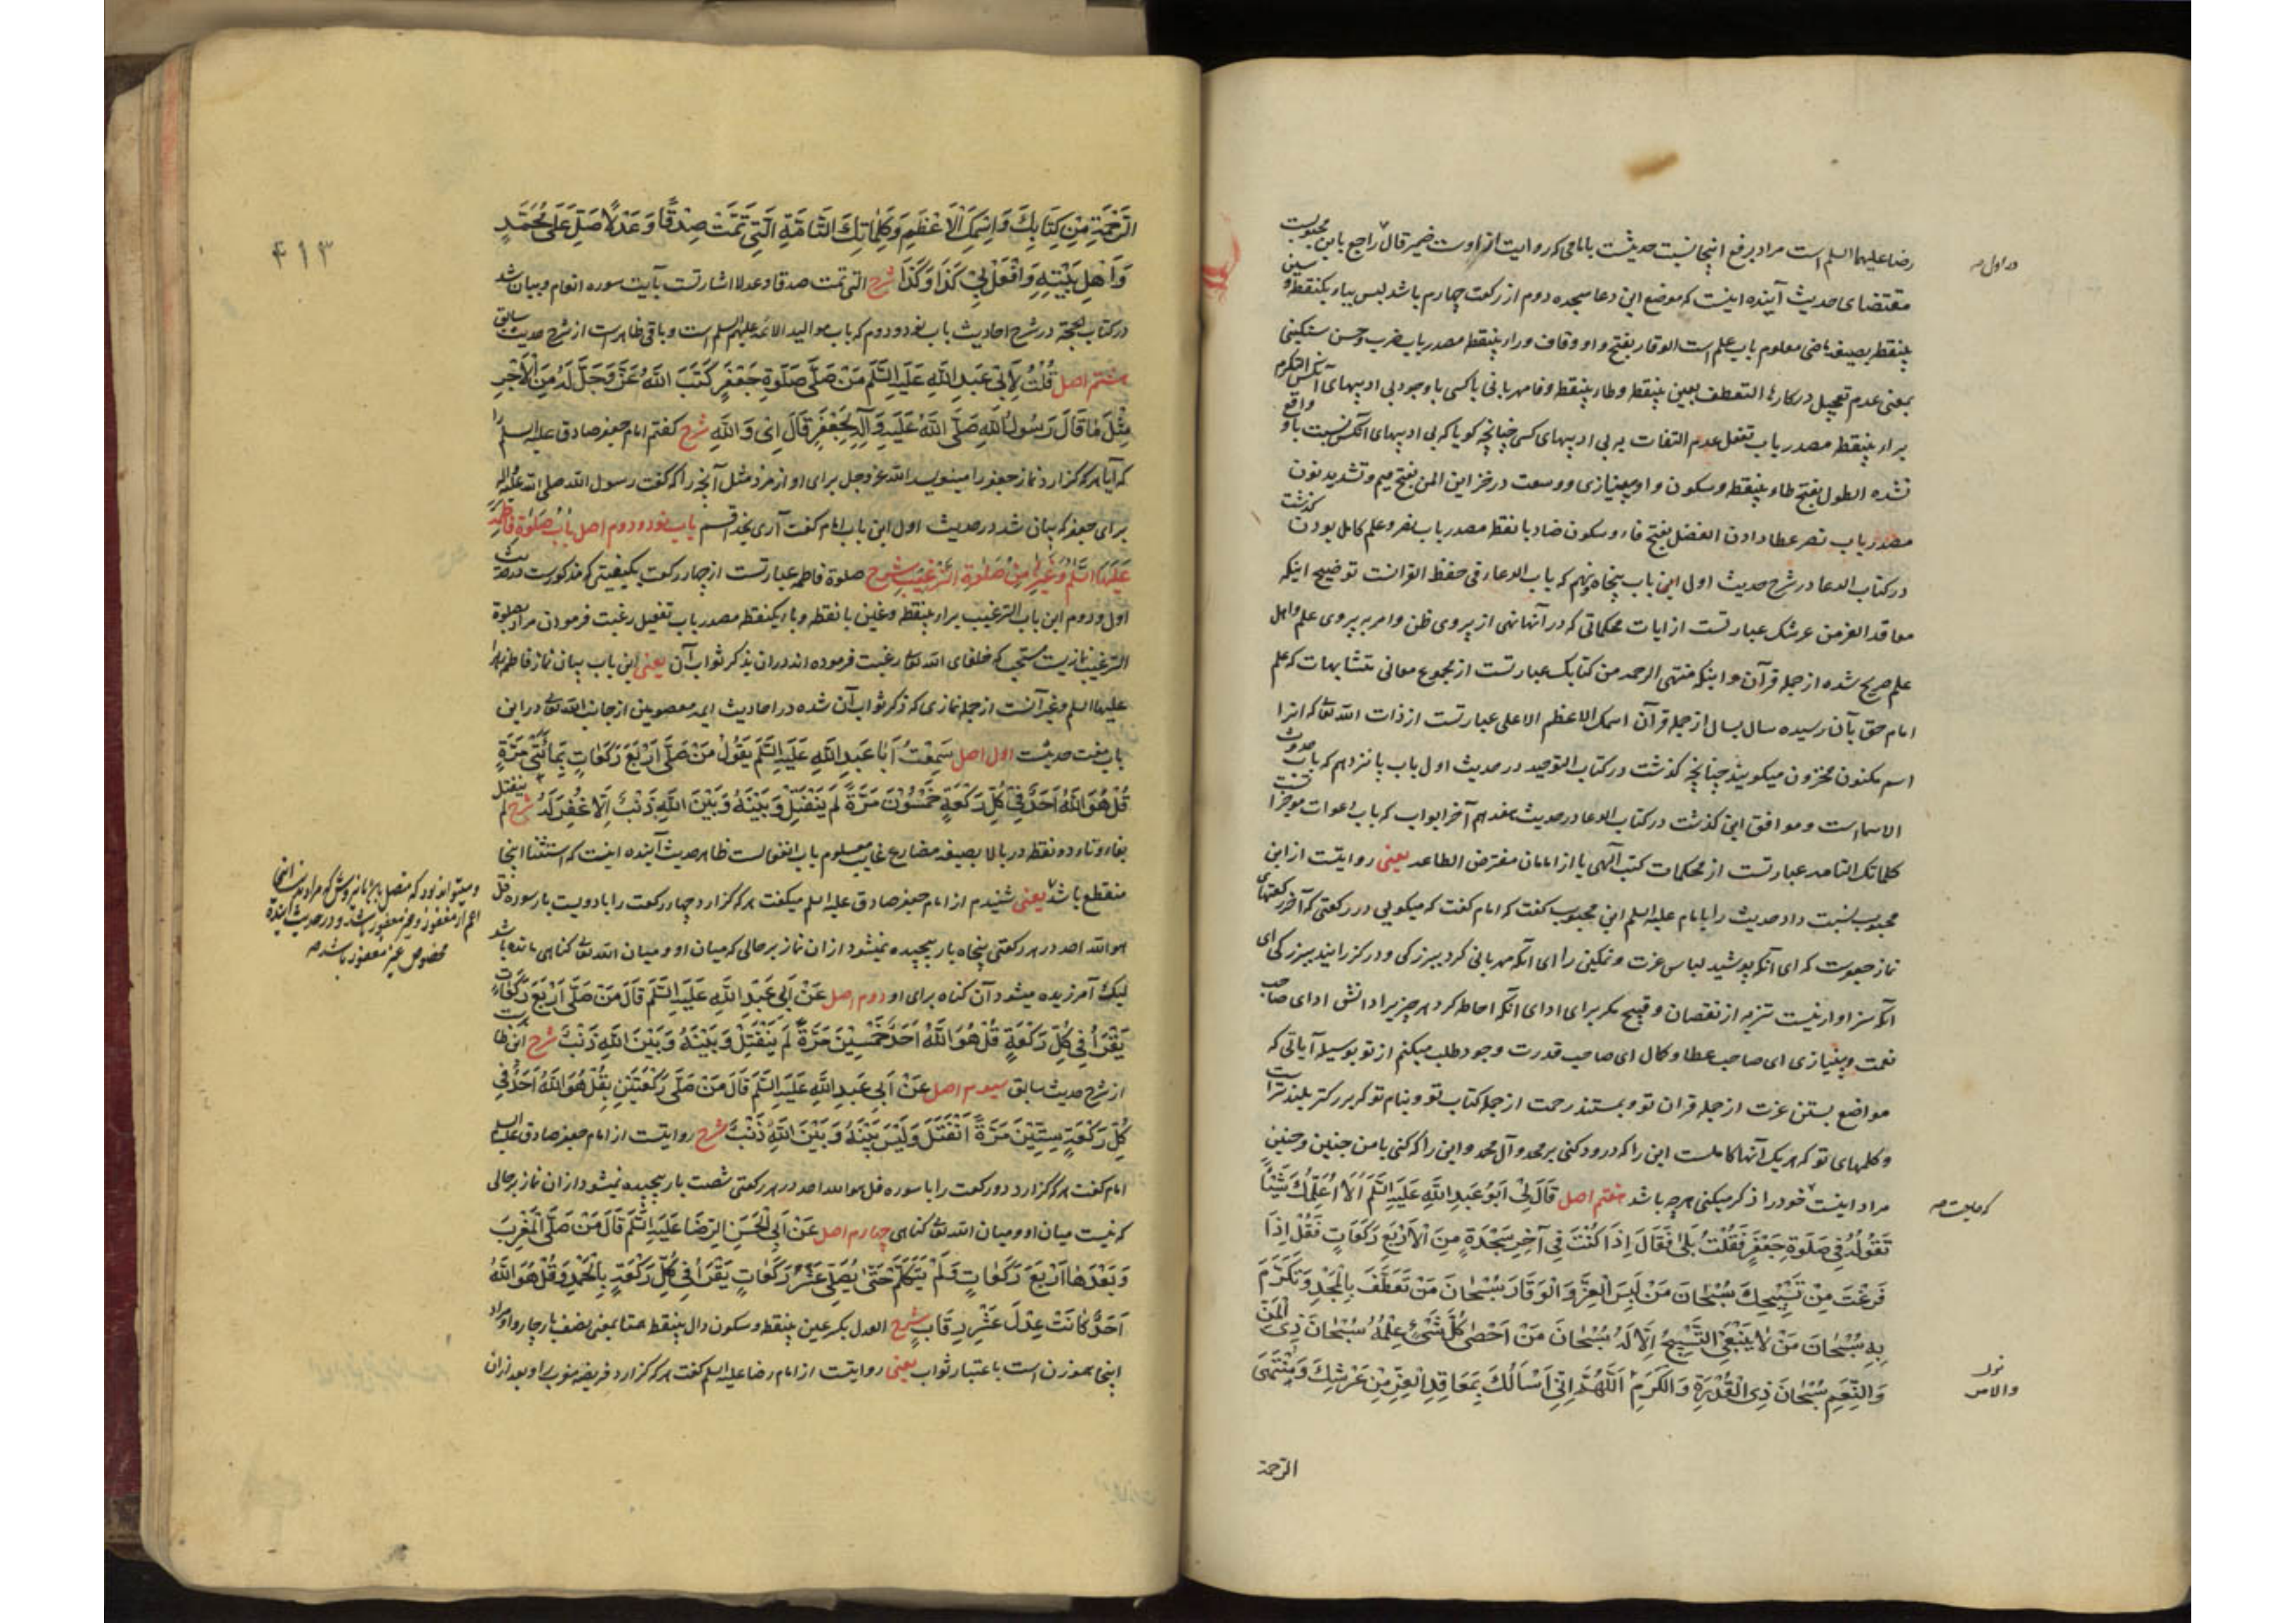 رضا علیهما السلم است مراد برفع اینجا نسبت حدیثست بامامی که روایت ازوست ضمیر قال راجع بابن محبوبست
مقتضای حدیث آینده اینست که موضع این دعا سجده دوم از رکعت چهارم باشد لبس بباء یکنقطه و سین
بینقطه بصیغه ماضی معلوم باب علم است الوقار بفتح واو و قاف و راء بینقطه مصدر باب ضرب و حسن سنکینی
بمعنی عدم تعجیل در کارها التعطف بعین بینقطه و طاء بینقطه و فا مهربانی باکسی با وجود بی ادبیهای آنکس التکرم
براء بینقطه مصدر باب تفعل عدم التفات به بی ادبیهای کسی چنانچه کویا که بی ادبیهای آنکس نسبت باو واقع
نشده الطول بفتح طاء بینقطه و سکون واو بینیازی و وسعت در خزاین المن بفتح میم و تشدید نون
مصدر باب نصر عطا دادن الفضل بفتح فاء و سکون ضاد با نقطه مصدر باب نصر و علم کامل بودن کذشت
در کتاب الدعا در شرح حدیث اول این باب پنجاه و نهم که باب الدعاء فی حفظ القرانست توضیح اینکه
معاقد العز من عرشک عبارتست از ایات محکماتی که در آنها نهی از پیروی ظن و امر به پیروی علم و اهل
علم صریح شده از جمله قرآن و اینکه منتهی الرحمه من کتابک عبارتست از مجموع معانی متشابهات که علم
امام حق بآن رسیده سال بسال از جمله قرآن اسمک الاعظم الاعلی عبارتست از ذات الله تعالی که انرا
اسم مکنون مخزون میکویند چنانچه کذشت در کتاب التوحید در حدیث اول باب پانزدهم که باب حدوث
الاسماست و موافق این کذشت در کتاب الدعا در حدیث هفدهم آخر ابواب که باب دعوات موجزا تست
کلماتک التامه عبارتست از محکمات کتب الهی یا از امامان مفترض الطاعه یعنی روایتست از ابن
محبوب نسبت داد حدیث را بامام علیه السلم ابن محبوب کفت که امام کفت که میکویی در رکعتی که آخر رکعتهای
نماز جعفرست که ای آنکه پوشید لباس عزت و تمکین را ای آنکه مهربانی کرد ببزرکی و در کزرانید ببزرکی ای
آنکه سزاوار نیست تنزیه از نقصان و قبیح مکر برای او ای آنکه احاطه کرد هر چیز را دانش او ای صاحب
نعمت و بینیازی ای صاحب عطا و کمال ای صاحب قدرت و جود طلب میکنم از تو بوسیله آیاتی که
مواضع بستن عزت از جمله قران تو و بمستند رحمت از جمله کتاب تو و بنام تو که بزرکتر بلند تراست
و کلمهای تو که هر یک آنها کاملست این را که درود کنی بر محمد و آل محمد و این را که کنی با من چنین و چنین
مراد اینست خود را ذکر میکنی هرچه باشد هفتم اصل قَالَ لِی اَبُو عَبدِ اللهِ عَلَیهِ السَّلَم اَلَا اُعَلِّمُكَ شَیئاً
تَقُولُهُ فِی صَلَوةِ جَعفَرٍ فَقُلتُ بَلٰی فَقَالَ اِذَا کُنتَ فِی آخِرِ سَجدَةٍ مِنَ الاَربَعِ رَکَعَاتٍ فَقُل اِذَا
فَرَغتَ مِن تَسبِیحِكَ سُبحَانَ مَن لَبِسَ العِزَّ وَالوَقَارَ سُبحَانَ مَن تَعَطَّفَ بِالمَجدِ وَتَکَرَّمَ
بِهِ سُبحَانَ مَن لَا یَنبَغِی التَّسبِیحُ اِلَّا لَهُ سُبحَانَ مَن اَحصٰی کُلَّ شَیءٍ عِلمُهُ سُبحَانَ ذِی المَنِّ
وَالنِّعَمِ سُبحَانَ ذِی القُدرَةِ وَالکَرَمِ اَللّٰهُمَّ اِنِّی اَسئَالُكَ بِمَعَاقِدِ العِزِّ مِن عَرشِكَ وَمُنتَهَی
الرحمة
در اول صه
والامر
۴۱۳
الرَّحمَةِ مِن کِتَابِكَ وَاسمِكَ الاَعظَمِ وَکَلِمَاتِكَ التَّامَّةِ الَّتِی تَمَّت صِدقًا وَعَدلًا صَلِّ عَلٰی مُحَمَّدٍ
وَاَهلِ بَیتِهِ وَافعَل بِی کَذَا وَکَذَا شرح التی تمت صدقا وعدلا اشارتست بآیت سوره انعام و بیان شد
در کتاب الحجة در شرح احادیث باب نود و دوم که باب موالید الائمه علیهم السلم است و باقی ظاهرست از شرح حدیث سابق
هشتم اصل قُلتُ لِاَبِی عَبدِ اللهِ عَلَیهِ السَّلَم مَن صَلَّی صَلَوةَ جَعفَرٍ کَتَبَ اللهُ عَزَّ وَجَلَّ لَهُ مِنَ الاَجرِ
مِثلَ مَا قَالَ رَسُولُ اللهِ صَلَّی اللهُ عَلَیهِ وَآلِهِ لِجَعفَرٍ قَالَ اِی وَاللهِ شرح کفتم امام جعفر صادق علیه السلم را
که آیا هر که کزارد نماز جعفر را مینویسد الله عز و جل برای او از مزد مثل آنچه را که کفت رسول الله صلی الله علیه و اله
برای جعفر که بیان شد در حدیث اول این باب امام کفت آری بخدا قسم باب نود و دوم اصل بَابُ صَلَوةِ فَاطِمَةَ
عَلَیهَا السَّلَم وَغَیرِهَا مِن صَلَوةِ التَّرغِیبِ شرح صلوة فاطمه عبارتست از چهار رکعت بکیفیتی که مذکورست در حدیث
اول و دوم این باب الترغیب براء بینقطه و غین با نقطه و باء یکنقطه مصدر باب تفعیل رغبت فرمودن مراد بصلوة
الترغیب نمازیست مستحب که خلفای الله تعالی رغبت فرموده اند دران بذکر ثواب آن یعنی این باب بیان نماز فاطمه زهرا
علیها السلم و غیر آنست از جمله نمازی که ذکر ثواب آن شده در احادیث ایمه معصومین از جانب الله تعالی در این
باب هفت حدیثست اول اصل سَمِعتُ اَبَا عَبدِ اللهِ عَلَیهِ السَّلَم یَقُولُ مَن صَلَّی اَربَعَ رَکَعَاتٍ بِمِائَتَی مَرَّةٍ
قُل هُوَ اللهُ اَحَدٌ فِی کُلِّ رَکعَةٍ خَمسُونَ مَرَّةً لَم یَنفَتِل وَبَینَهُ وَبَینَ اللهِ ذَنبٌ اِلَّا غُفِرَ لَهُ شرح لم ینفتل
بفاء و تاء دو نقطه در بالا بصیغه مضارع غایب معلوم باب انفعالست ظاهر حدیث آینده اینست که استثنا اینجا
منقطع باشد یعنی شنیدم از امام جعفر صادق علیه السلم میکفت هر که کزارد چهار رکعت را با دویست بار سوره قل
هو الله احد در هر رکعتی پنجاه بار پیچیده نمیشود ازان نماز بر حالی که میان او و میان الله تعالی کناهی مانده باشد
لیک آمرزیده میشود آن کناه برای او دوم اصل عَن اَبِی عَبدِ اللهِ عَلَیهِ السَّلَم قَالَ مَن صَلَّی اَربَعَ رَکَعَاتٍ
یَقرَأُ فِی کُلِّ رَکعَةٍ قُل هُوَ اللهُ اَحَدٌ خَمسِینَ مَرَّةً لَم یَنفَتِل وَبَینَهُ وَبَینَ اللهِ ذَنبٌ شرح این ظاهرست
از شرح حدیث سابق سیوم اصل عَن اَبِی عَبدِ اللهِ عَلَیهِ السَّلَم قَالَ مَن صَلَّی رَکعَتَینِ بِقُل هُوَ اللهُ اَحَدٌ فِی
کُلِّ رَکعَةٍ سِتِّینَ مَرَّةً اِنفَتَلَ وَلَیسَ بَینَهُ وَبَینَ اللهِ ذَنبٌ شرح روایتست از امام جعفر صادق علیه السلم
امام کفت هر که کزارد دو رکعت را با سوره قل هو الله احد در هر رکعتی شصت بار پیچیده نمیشود ازان نماز بر حالی
که نیست میان او و میان الله تعالی کناهی چهارم اصل عَن اَبِی الحَسَنِ الرِّضَا عَلَیهِ السَّلَم قَالَ مَن صَلَّی المَغرِبَ
وَبَعدَهَا اَربَعَ رَکَعَاتٍ وَلَم یَتَکَلَّم حَتّٰی یُصَلِّیَ عَشرَ رَکَعَاتٍ یَقرَأُ فِی کُلِّ رَکعَةٍ بِالحَمدِ وَقُل هُوَ اللهُ
اَحَدٌ کَانَت عِدلَ عَشرِ رِقَابٍ شرح العدل بکسر عین بینقطه و سکون دال بینقطه
اینجا هموزن است باعتبار ثواب یعنی روایتست از امام رضا علیه السلم کفت هر که کزارد فریضه مغرب را و بعد ازان
اعم از مغفور و غیر مغفور باشد و در حدیث آینده
مخصوص غیر مغفور باشد صه